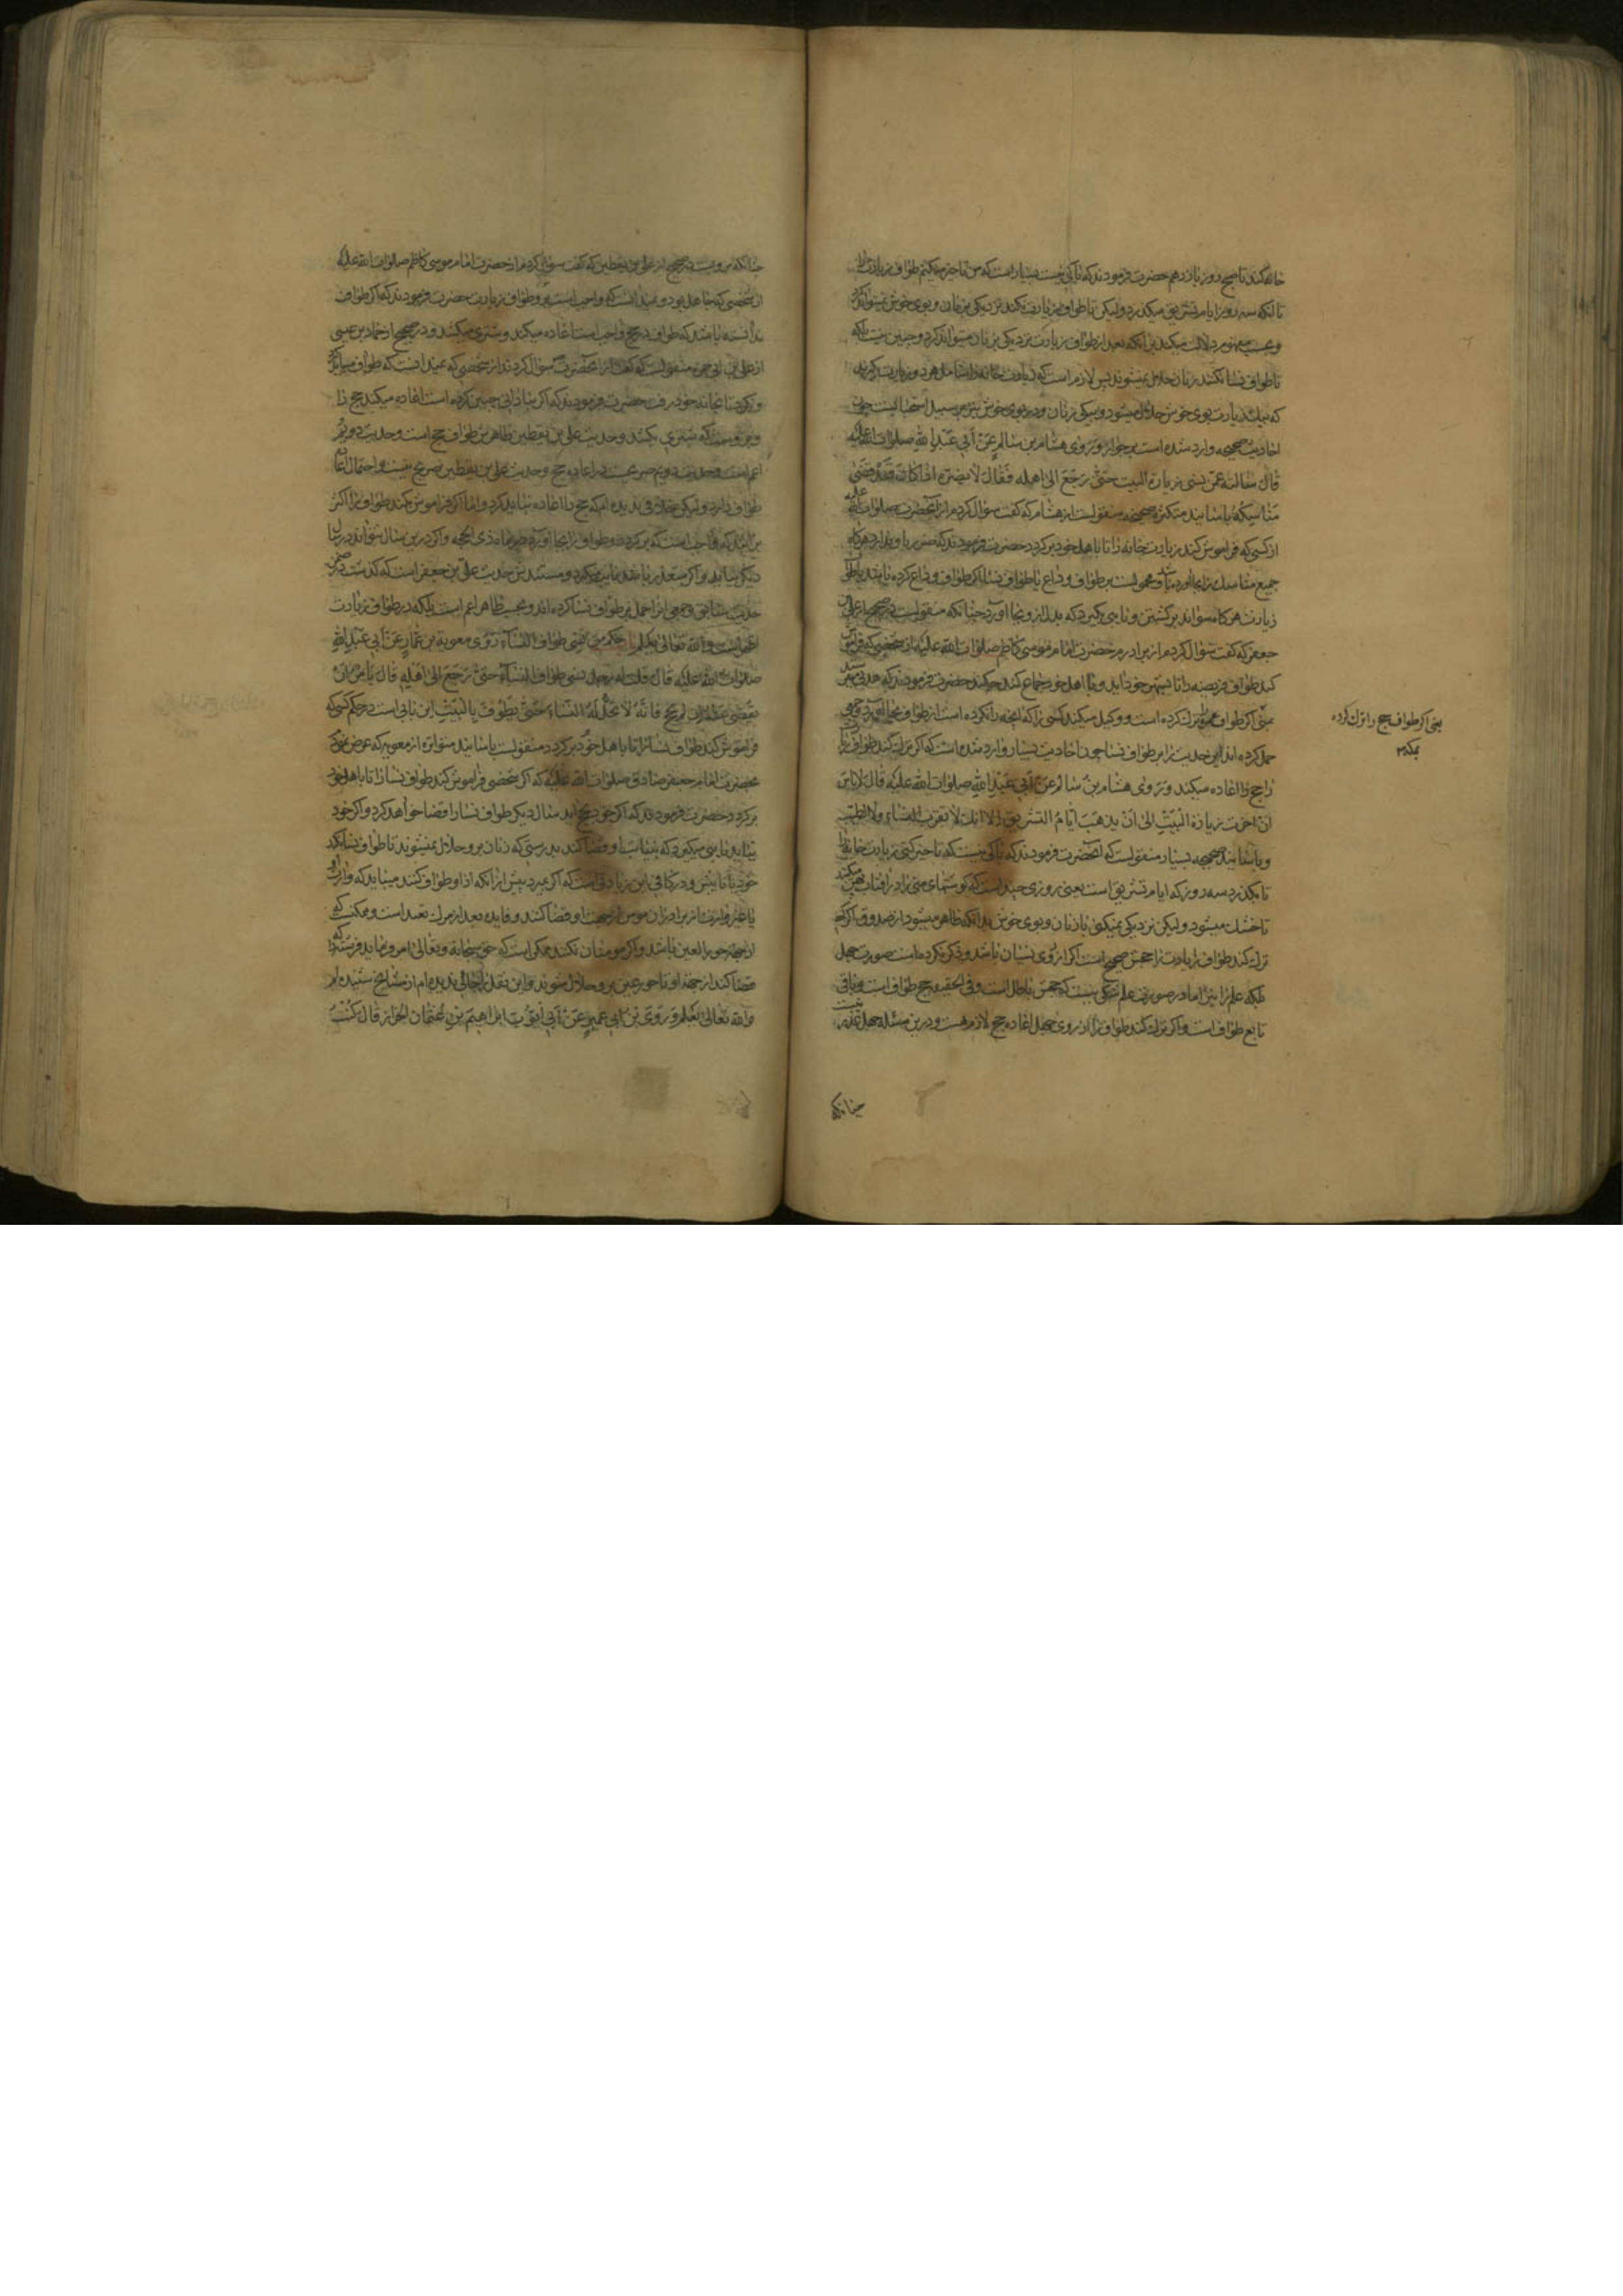 خانه کند تا صبح روز یازدهم حضرت فرمودند که باکی نیست بسیار است که من تاخیر میکنم طواف زیارت را
تا آنکه سه روز ایام تشریق میکذرد ولیکن تا طواف زیارت نکند نزدیکی زنان و بوی خوش نمیتواند کرد
و بحسب مفهوم دلالت میکند بر آنکه بعد از طواف زیارت نزدیکی زنان میتواند کرد و چنین نیست بلکه
تا طواف نسا نکند زنان حلال نمیشوند پس لازم است که زیارت خانه را شامل هر دو زیارت کیرند
که بیک زیارت بوی خوش حلال میشود و بیکی زنان و در بوی خوش نیز بر سبیل استحبابست چون
احادیث صحیحه وارد شده است بر جواز وَرَوی هشام بن سالم عَنْ أبي عَبْدِ اللهِ صلوات الله علیه
قال سألته عمّن نسی زیارة البیت حتّی رَجَعَ الی اهله فَقالَ لا یضرّه اذا کان قد قضی
مناسکه باسانید متکثره صحیحه منقولست از هشام که کفت سؤال کردم از آنحضرت صلوات الله علیه
از کسی که فراموش کند زیارت خانه را تا باهل خود برکردد حضرت فرمودند که ضرر باو ندارد هرکاه
جمیع مناسک را بجا آورده باشد و محمولست بر طواف وداع یا طواف نسا اکر طواف وداع کرده باشد یا طواف
زیارت هرکاه نتواند برکشتن و نایبی بکیرد که بدل او بجا آورد چنانکه منقولست در صحیح از علی بن
جعفر که کفت سؤال کردم از برادرم حضرت امام موسی کاظم صلوات الله علیه از شخصی که فراموش
کند طواف فریضه را تا بشهر خود آید و با اهل خود جماع کند چه کند حضرت فرمودند که هدیی میفرستد
بمنی اکر طواف عمره را ترک کرده است و وکیل میکند کسی را که آنچه را نکرده است از طواف بجا آورد و جمعی
حمل کرده اند این حدیث را بر طواف نسا چون احادیث بسیار وارد شده است که اکر ترک کند طواف
حج را اعاده میکند وَرَوی هشام بنُ سالم عَنْ أبي عَبْدِ اللهِ صلوات الله علیه قالَ لا باس
ان اخرت زیارة البَیْتِ الی اَنْ یذهَبَ اَیّامُ التشریق الا انك لا تقرب النساء ولا الطیب
و باسانید صحیحه بسیار منقولست که آنحضرت فرمودند که باکی نیست که تاخیر کنی زیارت خانه را
تا بکذرد سه روز که ایام تشریق است یعنی روزی چند است که کوشتهای منی را در آفتاب پهن میکنند
تا خشک میشود ولیکن نزدیکی نمیکنی با زنان و بوی خوش بدانکه ظاهر میشود از صدوق که اکر کسی
ترک کند طواف زیارت را حجش صحیح است اکر از روی نسیان باشد و ذکر نکرده است صورت جهل
بلکه علم را نیز اما در صورت علم شکی نیست که حجش باطل است و فی الحقیقه حج طواف است و باقی
تابع طواف است و اکر ترک کند طواف را از روی جهل اعاده حج لازم هست و درین مسئله جهل عذر نیست
چنانکه
یعنی اکر طواف حج را ترک کرده
چنانکه مرویست در صحیح از علی بن یقطین که کفت سؤال کردم از حضرت امام موسی کاظم صلوات الله علیه
از شخصی که جاهل بود و نمیدانست که واجب است برو طواف زیارت حضرت فرمودند که اکر طواف
ندانسته باشد که طواف در حج واجب است اعاده میکند و شتری میکشد و در صحیح از حماد بن عیسی
از علی بن ابی حمزه منقولست که کفت از آنحضرت سؤال کردند از شخصی که نمیدانست که طواف میباید کرد
و نکرد تا بخانه خود رفت حضرت فرمودند که اکر بنادانی چنین کرده است اعاده میکند حج را
و برو هست که شتری بکشد و حدیث علی بن یقطین ظاهرش طواف حج است و حدیث دویم
اعم است و حدیث دویم صریحست در اعاده حج و حدیث علی بن یقطین صریح نیست و احتمال اعاده
طواف دارد ولیکن خلافی ندیده ام که حج را اعاده میباید کرد و اما اکر فراموش کند طواف را اکثر
برآنند که واجب است که برکردد و طواف را بجا آورد در تمام ذی الحجه و اکر درین سال نتواند در سال
دیکر بیاید و اکر متعذر باشد نایب میکیرد و مستندش حدیث علی بن جعفر است که کذشت در ضمن
حدیث سابق و جمعی آنرا حمل بر طواف نسا کرده اند و بحسب ظاهر اعم است بلکه در طواف زیارت
اظهر است والله تعالی یعلم حکم من نسی طواف النساء رَوَی معویة بن عمّار عَنْ أبي عَبْدِ اللهِ
صلوات الله علیه قال قلت له رجل نسی طواف النساء حتّی رَجَعَ الی اَهله قالَ یأمر ان
یقضی عنه ان لم یحج فانّه لا تحلّ له النساء حتّی یطوفَ بالبَیْتِ این بابی است در حکم کسی که
فراموش کند طواف نسا را تا باهل خود برکردد منقولست باسانید متواتره از معویه که عرض نمود
بحضرت امام جعفر صادق صلوات الله علیه که اکر شخصی فراموش کند طواف نسا را تا باهل خود
برکردد حضرت فرمودند که اکر خود بحج آید سال دیکر طواف نسا را قضا خواهد کرد و اکر خود
نیاید نایبی میکیرد که بنیابت او قضا کند بدرستی که زنان برو حلال نمیشوند تا طواف نسا نکند
خود یا نایبش و در کافی این زیادتی است که اکر بمیرد پیش از آنکه ادا و طواف کنند میباید که وارث او
یا غیر وارث از برادران مومن از جهت او قضا کنند و فایده بعد از مرک تعبد است و ممکنست که
از جهة حور العین باشد و اکر مومنان نکنند ممکن است که حق سبحانه و تعالی امر فرماید فرشته را که
قضا کند از جهة او تا حور عین برو حلال شوند و این نقل را جائی ندیده ام از مشایخ شنیده ام
والله تعالی یعلم وَرَوَی بْن اَبي عُمیرٍ عَنْ أبي أیّوبَ ابراهیم بنِ عُثمان الخزاز قالَ کُنْتُ